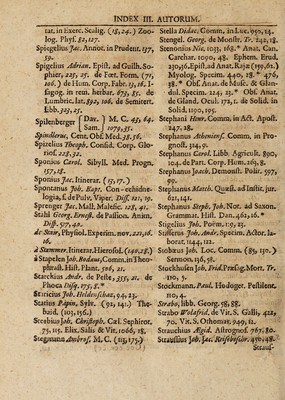 INDEX III. AUTORUM.
tat. in Exerc. Scalig. (18,24) Zoo-
log. Phys. 52,127.
Spigelius Jac. Annot. in Prudent. 137,
59.
Spigelius Adrian. Epist. ad Guilh. So-
phier, 225, 27. de Foet. Form. (71,
106.) de Hum. Corp. Fabr. 15,16. I-
sagog. in rem. herbar. 675, 85. de
Lumbric. lat. 892, 106. de Semitert.
Lib. 323, 25.
Spilenberger Dav. M. C. 43, 64.
Sam. 1079, 85.
Spindlerus, Cent. Obs. Med. 28. 56.
Spizelius Theoph. Consid. Corp. Glo-
rios. 228. 32.
Sponius Carol. Sibyll. Med. Progn.
157, 18.
Sponius Jac. Itinerar. (13, 17.)
Spontanus Joh. Bapt. Con-echidno-
logia, f. de Pulv. Viper. Diss. 121, 19.
Sprenger Jac. Mall. Malefic. 128, 41.
Stahl Georg. Ernest. de Passion. Anim.
Diss. 317, 40.
de Stair, Physiol. Experim. nov. 221,16.
16.
à Stammer. Itinerar. Hierosol. (140.28.)
à Stapelen Joh. Bodaeus, Comm. in Theo-
phrast. Hist. Plant. 506, 21.
Starckius Andr. de Peste, 355, 21. de
Phoca Diss. 175, 8.
Staricius Joh. Heldenschatz, 94, 23.
Statius Papin. Sylv. (92, 141.) The-
baid, (103, 156.)
Steebius Joh. Christoph. Cael. Sephirot.
75, 115. Elix. Salis & Vit. 1066, 18.
Stegmann Ambros. M. C. (113, 175.)
Stella Didac. Comm. in Luc. 950, 14.
Stengel. Georg. de Monstr. Tr. 242, 18.
Stenonius Nic. 1013, 168. * Anat. Can.
Carchar. 1090, 48. Ephem. Erud.
230,46. Epist. ad Anat. Raja (359, 61.)
Myolog. Specim. 440, 28. * 476,
38. * Obs. Anat. de Musc. & Glan-
dul. Specim. 243, 23. * Obs. Anat.
de Gland. Ocul. 172, 1. de Solid. in
Solid. 1190, 195.
Stephani Henr. Comm. in Act. Apost.
247. 28.
Stephanus Atheniens. Comm. in Pro-
gnost. 314, 9.
Stephanus Carol. Libb. Agricult. 890,
104. de Part. Corp. Hum. 163, 8.
Stephanus Joach. Demonst. Polit. 597,
99.
Stephanus Matth. Quaest. ad Instit. jur.
621, 141.
Stephanus Steph. Joh. Not. ad Saxon.
Grammat. Hist. Dan. 462, 16. *
Stigelius Joh. Poëm. 1:9, 23.
Stisserus Joh. Andr. Specim. Actor. la-
borat. 1144, 122.
Stobaeus Joh. Loc. Comm. (83, 130.)
Sermon. 136, 58.
Stockhusen Joh. Frid. Praesag. Mort. Tr.
120, 5.
Stockmann. Paul. Hodoget. Pestilent.
110, 4.
Strabo, libb. Geogr. 58, 88.
Strabo Walafrid. de Vit. S. Galli, 422,
70. Vit. S. Othomat. 949, 61.
Strauchius Ægid. Astrognos. 767, 80.
Straussius Joh. Jac. 450, 48.
Strauss-